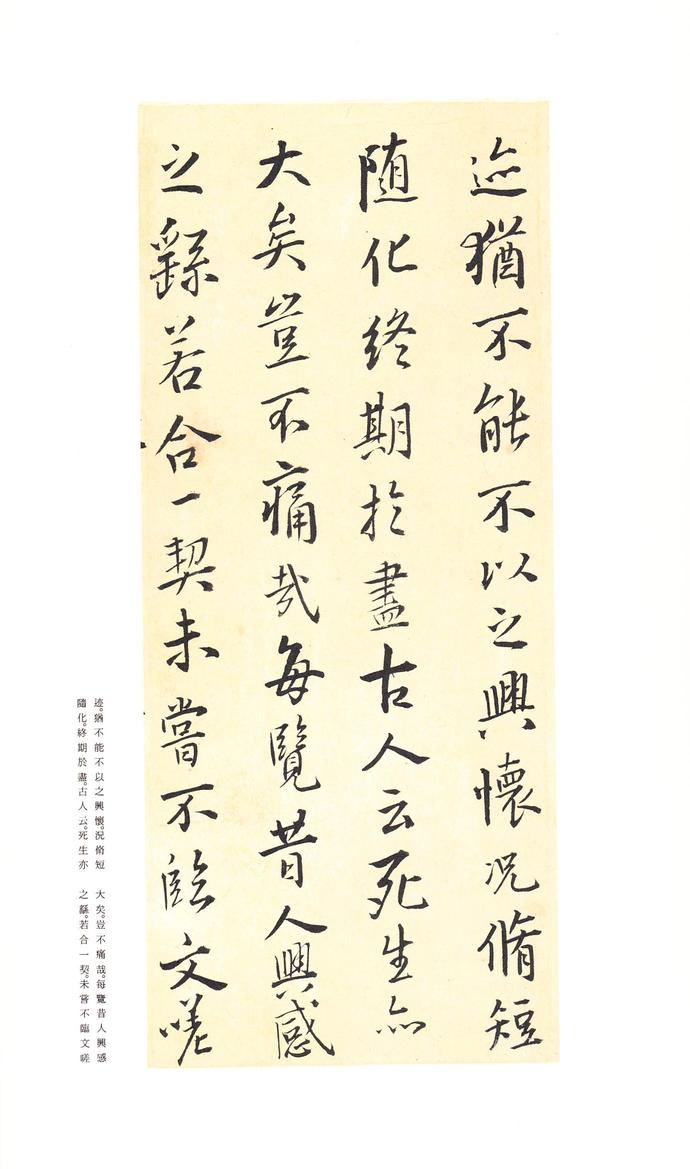 迹猶不能不以之興懷况脩短
随化終期於盡古人云死生亦
大矣豈不痛哉每覽昔人興感
之繇若合一契未嘗不臨文嗟
迹。猶不能不以之興懷。況脩短
隨化。終期於盡。古人云。死生亦
大矣。豈不痛哉。每覽昔人興感
之繇。若合一契。未嘗不臨文嗟